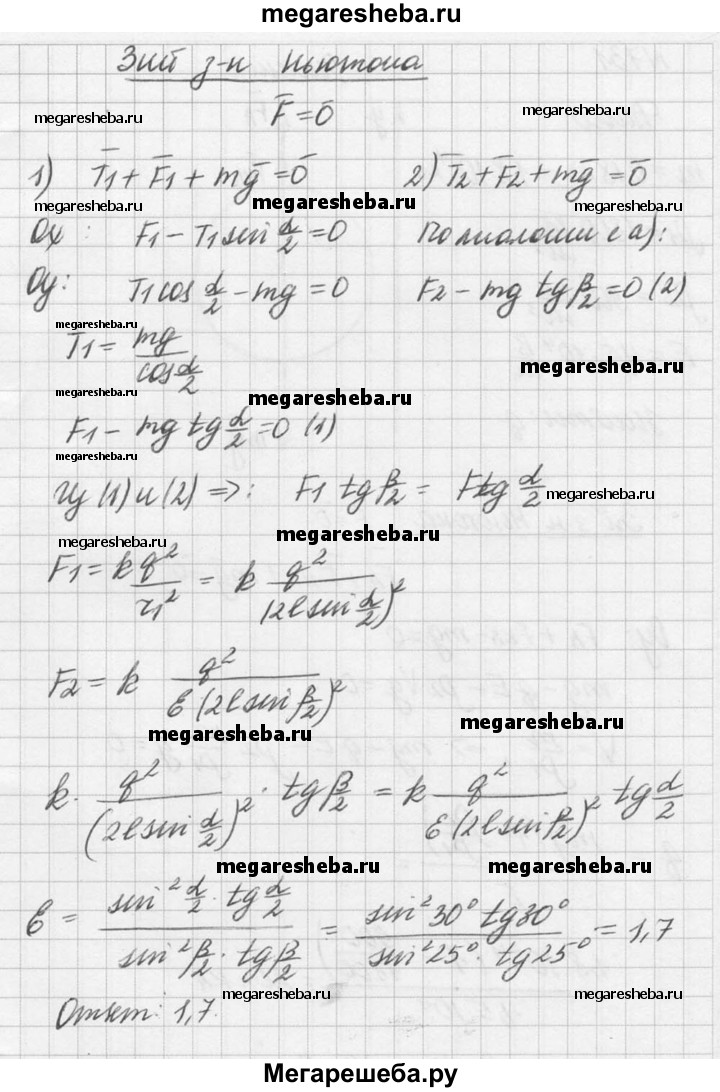 megaresheba.ru
3ий з-н Ньютона
F̅ = 0̅
megaresheba.ru megaresheba.ru
1) T̅1 + F̅1 + mg̅ = 0̅ 2) T̅2 + F̅2 + mg̅ = 0̅
megaresheba.ru megaresheba.ru megaresheba.ru
Ox : F1 - T1 sin α/2 = 0 По аналогии с а):
Oy: T1 cos α/2 - mg = 0 F2 - mg tg β/2 = 0 (2)
megaresheba.ru
T1 = mg / cos α/2
megaresheba.ru
megaresheba.ru megaresheba.ru
F1 - mg tg α/2 = 0 (1)
megaresheba.ru
Из (1) и (2) =>: F1 tg β/2 = F2 tg α/2
megaresheba.ru
megaresheba.ru
megaresheba.ru
F1 = k q² / r1² = k q² / (2l sin α/2)²
megaresheba.ru
F2 = k q² / ε (2l sin β/2)²
megaresheba.ru megaresheba.ru
k · q² / (2l sin α/2)² · tg β/2 = k q² / ε (2l sin β/2)² tg α/2
megaresheba.ru megaresheba.ru
ε = sin² α/2 · tg α/2 / sin² β/2 · tg β/2 = sin² 30° tg 30° / sin² 25° · tg 25° = 1,7
megaresheba.ru megaresheba.ru
Ответ: 1,7.
Мегарешеба.ру